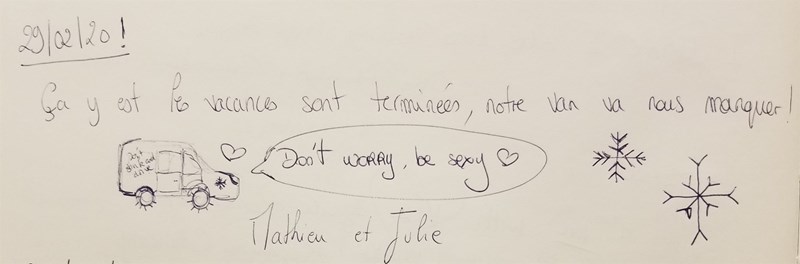 29/02/20!
Ça y est les vacances sont terminées, notre van va nous manquer!
Don't
drink and
drive
Don't WORRY, be sexy ♡
Mathieu et Julie